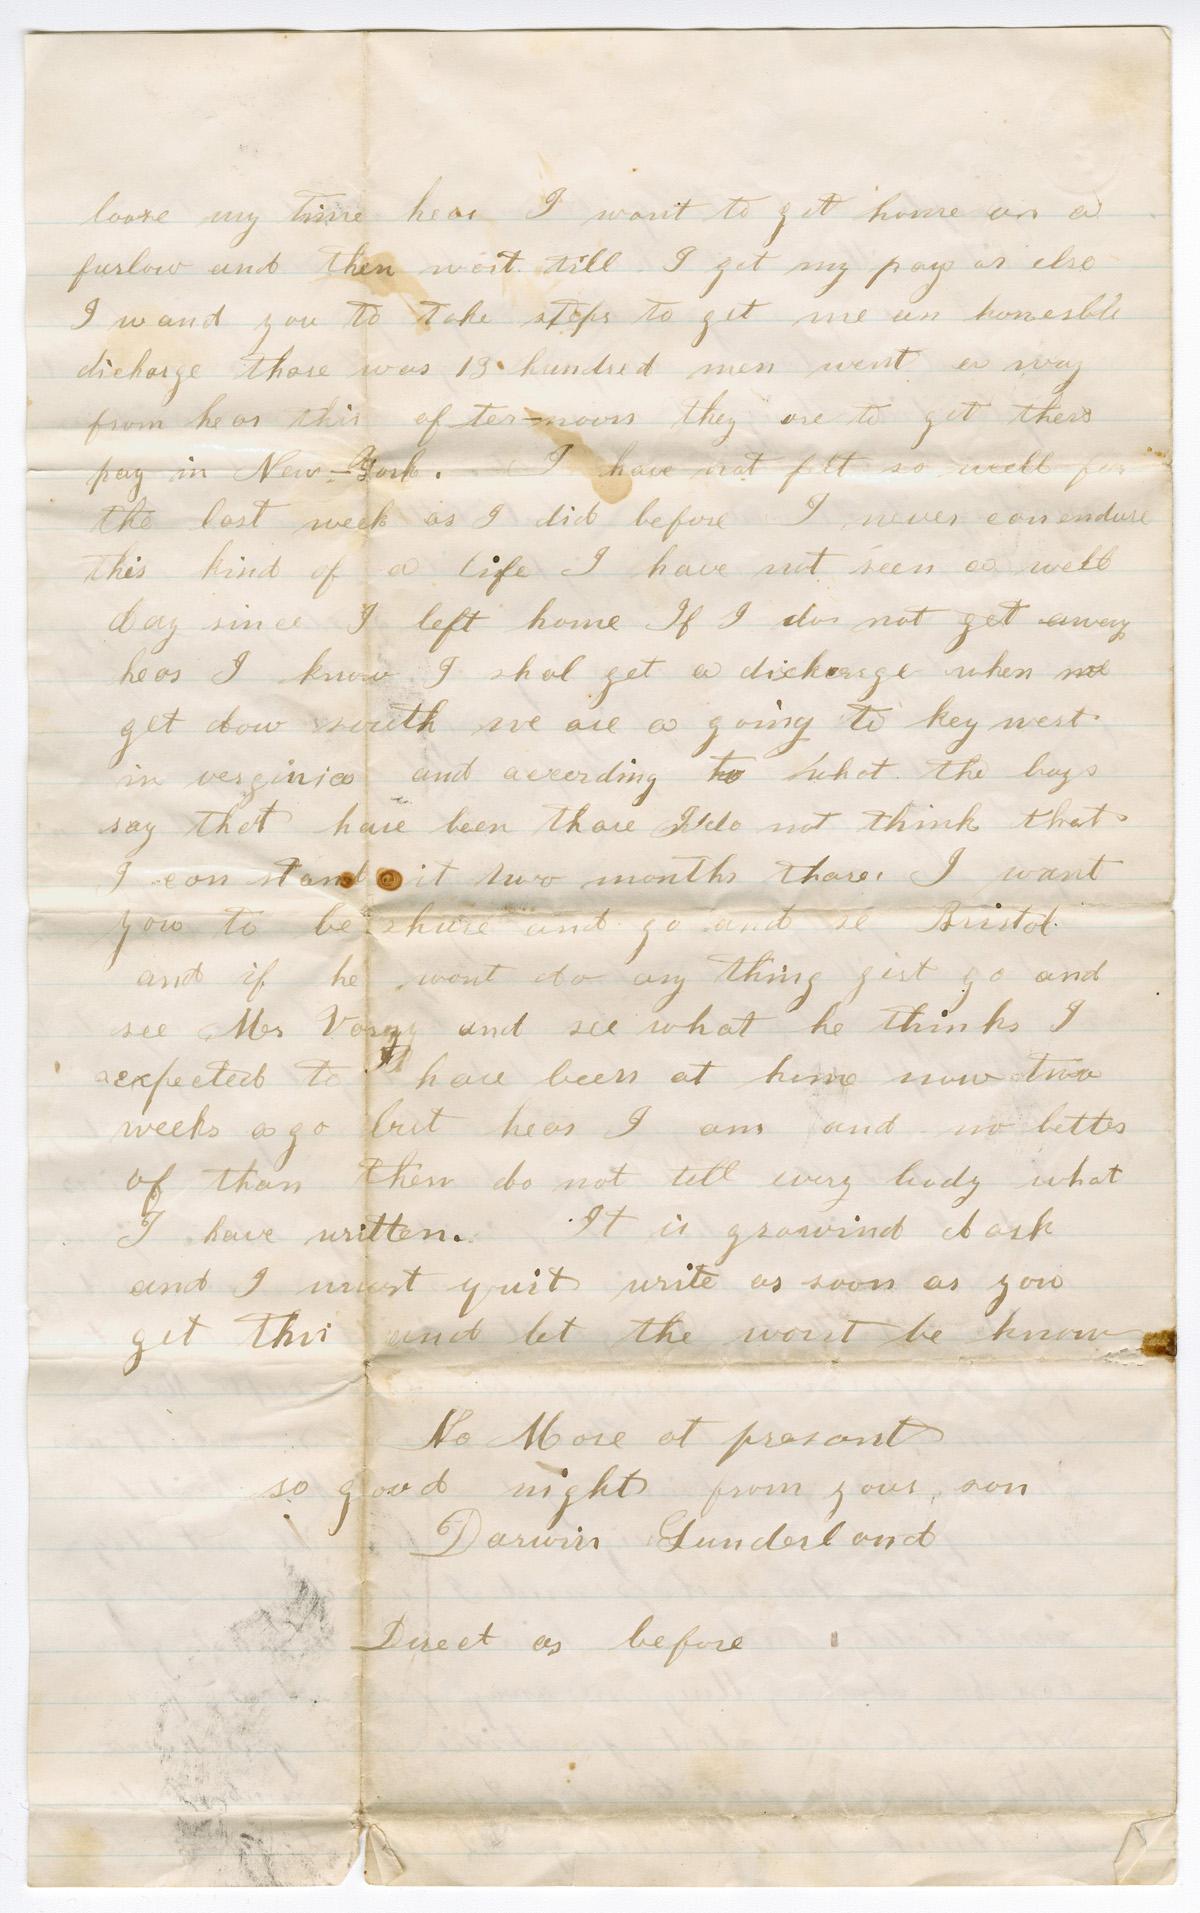 loose my time hear I want to get home on a
furlow and then wait till I get my pay or else
I wand you to take steps to get me an honerble
dicharge thare was 13 hundred men went a way
from hear this after-noon they are to get there
pay in New-York. I have not felt so well for
the last week as I did before I never can endure
this kind of a life I have not seen a well
day since I left home If I dos not get away
hear I know I shal get a dicharge when we
get dow south we are a going to key west
in verginia and acceording to what the boys
say that have been thare I do not think that
I can stand it two months thare. I want
you to be shure and go and se Bristol
and if he wont do any thing gist go and
see Mr and see what he thinks I
expected to have been at home now two
weeks a go but hear I am and no better
of than then do not tell every body what
I have written. It is growind dark
and I must quit write as soon as you
get this and let the worst be know
No More at present
so good night from your son
Darwin Sunderland
Direct as before